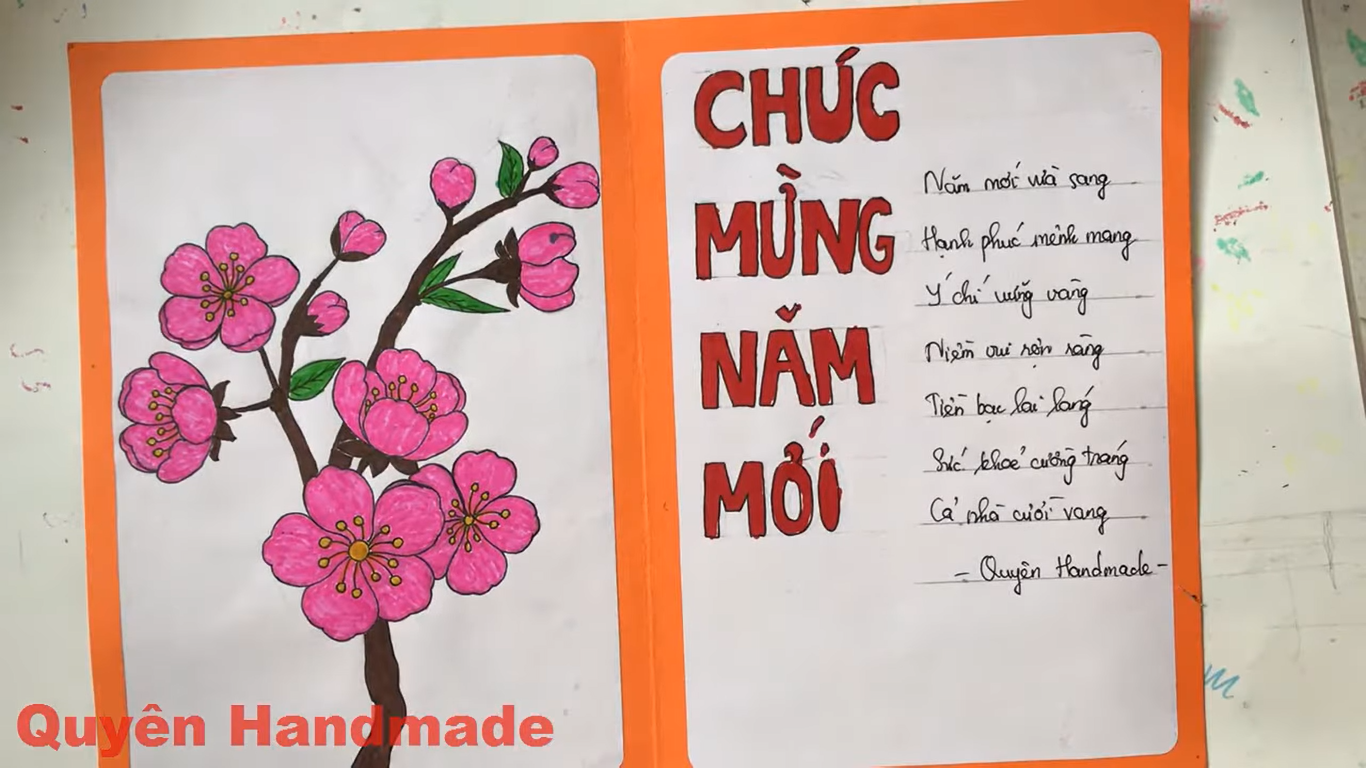 CHÚC
MỪNG
NĂM
MỚI
Năm mới vừa sang
Hạnh phúc mênh mang
Ý chí vững vàng
Niềm vui rộn ràng
Tiền bạc lai láng
Sức khoẻ cường tráng
Cả nhà cười vang
- Quyên Handmade -
Quyên Handmade